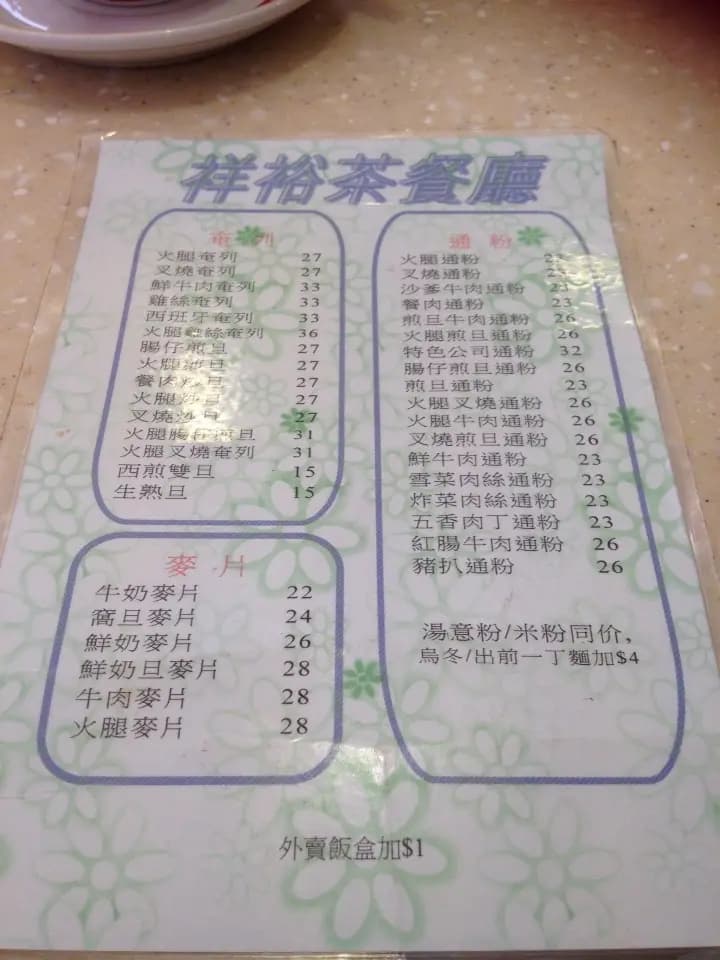 祥裕茶餐廳
奄列
火腿奄列 27
叉燒奄列 27
鮮牛肉奄列 33
雞絲奄列 33
西班牙奄列 33
火腿雞絲奄列 36
腸仔煎旦 27
火腿煎旦 27
餐肉炒旦 27
火腿炒旦 27
叉燒炒旦 27
火腿腸仔煎旦 31
火腿叉燒奄列 31
西煎雙旦 15
生熟旦 15
麥片
牛奶麥片 22
窩旦麥片 24
鮮奶麥片 26
鮮奶旦麥片 28
牛肉麥片 28
火腿麥片 28
通粉
火腿通粉
叉燒通粉
沙爹牛肉通粉 23
餐肉通粉 23
煎旦牛肉通粉 26
火腿煎旦通粉 26
特色公司通粉 32
腸仔煎旦通粉 26
煎旦通粉 23
火腿叉燒通粉 26
火腿牛肉通粉 26
叉燒煎旦通粉 26
鮮牛肉通粉 23
雪菜肉絲通粉 23
炸菜肉絲通粉 23
五香肉丁通粉 23
紅腸牛肉通粉 26
豬扒通粉 26
湯意粉/米粉同价,
烏冬/出前一丁麵加$4
外賣飯盒加$1